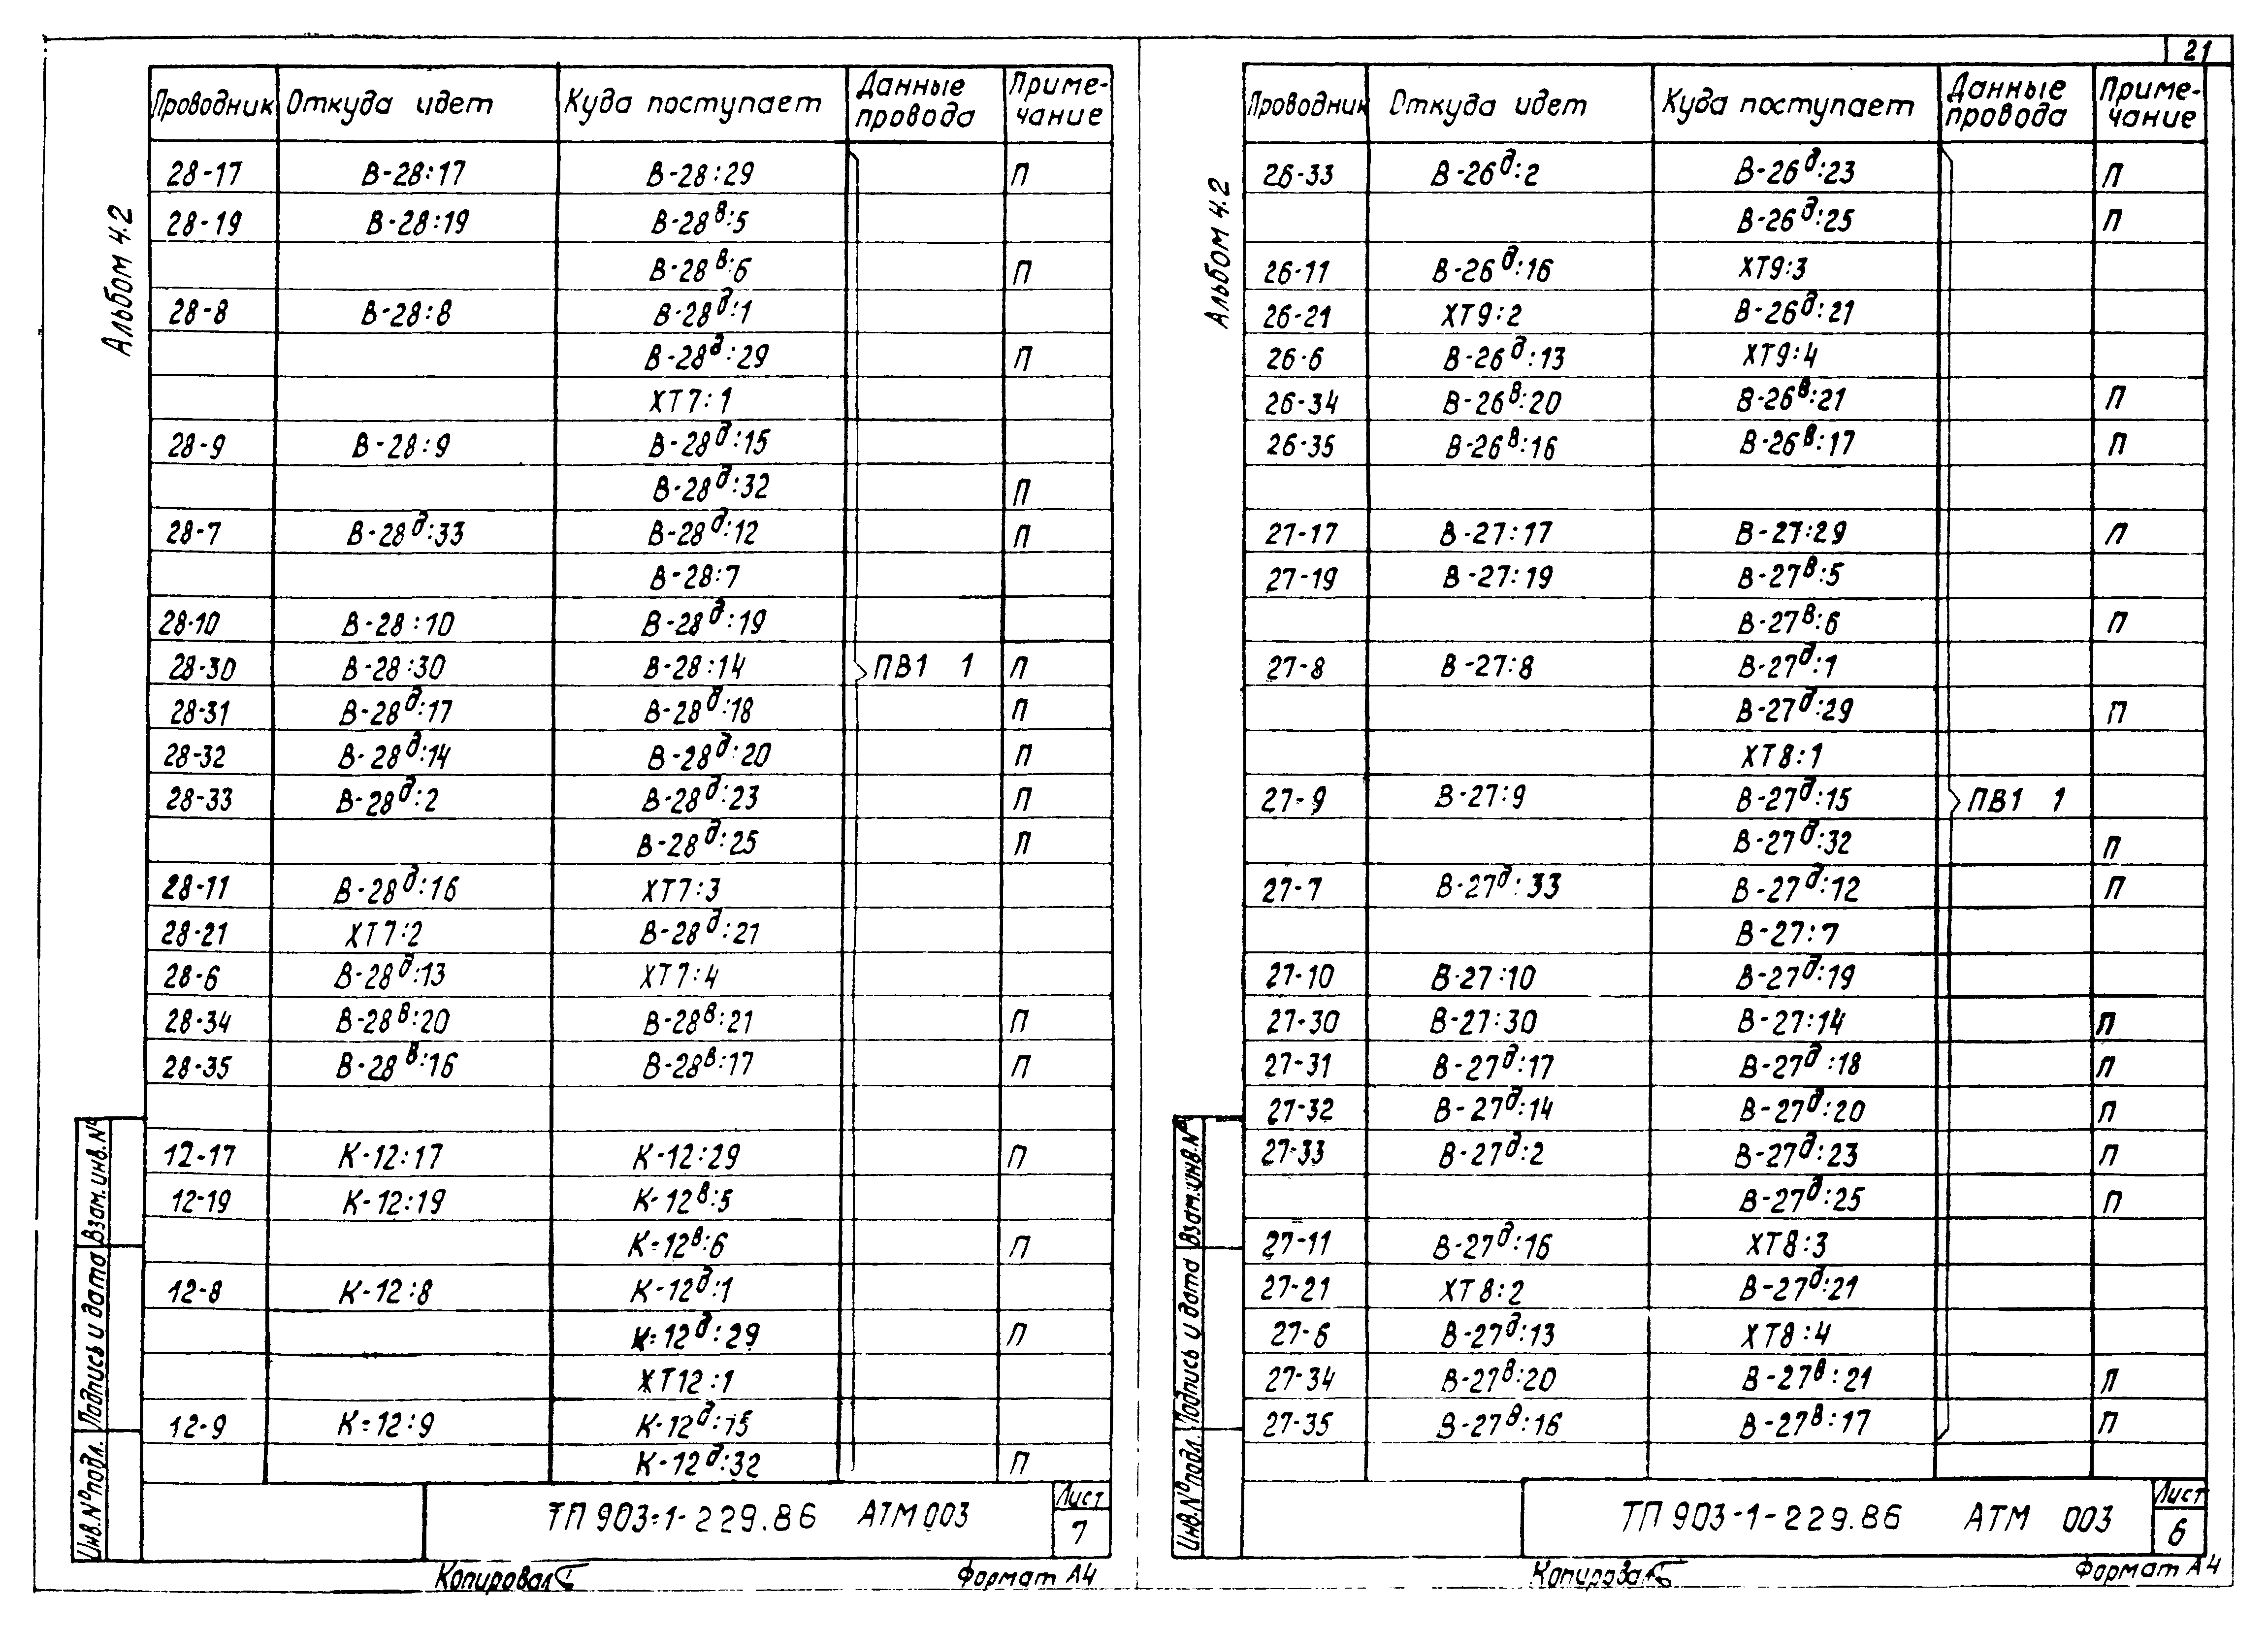 21
Альбом 4.2
Проводник Откуда идет Куда поступает Данные провода Приме-чание
28-17 В-28:17 В-28:29 П
28-19 В-28:19 В-28ᴮ:5
В-28ᴮ:6 П
28-8 В-28:8 В-28ᵟ:1
В-28ᵟ:29 П
ХТ7:1
28-9 В-28:9 В-28ᵟ:15
В-28ᵟ:32 П
28-7 В-28ᵟ:33 В-28ᵟ:12 П
В-28:7
28-10 В-28:10 В-28ᵟ:19
28-30 В-28:30 В-28:14 ПВ1 1 П
28-31 В-28ᵟ:17 В-28ᵟ:18 П
28-32 В-28ᵟ:14 В-28ᵟ:20 П
28-33 В-28ᵟ:2 В-28ᵟ:23 П
В-28ᵟ:25 П
28-11 В-28ᵟ:16 ХТ7:3
28-21 ХТ7:2 В-28ᵟ:21
28-6 В-28ᵟ:13 ХТ7:4
28-34 В-28ᴮ:20 В-28ᴮ:21 П
28-35 В-28ᴮ:16 В-28ᴮ:17 П
12-17 К-12:17 К-12:29 П
12-19 К-12:19 К-12ᴮ:5
К-12ᴮ:6 П
12-8 К-12:8 К-12ᵟ:1
К-12ᵟ:29 П
ХТ12:1
12-9 К-12:9 К-12ᵟ:15
К-12ᵟ:32 П
Взам.инв.№
Подпись и дата
Инв.№подл.
ТП 903-1-229.86 АТМ 003
Лист
7
Копировал
Формат А4
Альбом 4.2
Проводник Откуда идет Куда поступает Данные провода Приме-чание
26-33 В-26ᵟ:2 В-26ᵟ:23 П
В-26ᵟ:25 П
26-11 В-26ᵟ:16 ХТ9:3
26-21 ХТ9:2 В-26ᵟ:21
26-6 В-26ᵟ:13 ХТ9:4
26-34 В-26ᴮ:20 В-26ᴮ:21 П
26-35 В-26ᴮ:16 В-26ᴮ:17 П
27-17 В-27:17 В-27:29 П
27-19 В-27:19 В-27ᴮ:5
В-27ᴮ:6 П
27-8 В-27:8 В-27ᵟ:1
В-27ᵟ:29 П
ХТ8:1
27-9 В-27:9 В-27ᵟ:15 ПВ1 1
В-27ᵟ:32 П
27-7 В-27ᵟ:33 В-27ᵟ:12 П
В-27:7
27-10 В-27:10 В-27ᵟ:19
27-30 В-27:30 В-27:14 П
27-31 В-27ᵟ:17 В-27ᵟ:18 П
27-32 В-27ᵟ:14 В-27ᵟ:20 П
27-33 В-27ᵟ:2 В-27ᵟ:23 П
В-27ᵟ:25 П
27-11 В-27ᵟ:16 ХТ8:3
27-21 ХТ8:2 В-27ᵟ:21
27-6 В-27ᵟ:13 ХТ8:4
27-34 В-27ᴮ:20 В-27ᴮ:21 П
27-35 В-27ᴮ:16 В-27ᴮ:17 П
Взам.инв.№
Подпись и дата
Инв.№подл.
ТП 903-1-229.86 АТМ 003
Лист
6
Копировал
Формат А4